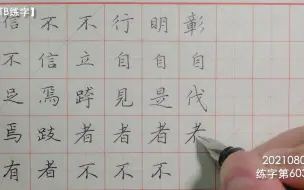 B练字】
信不足焉有
不信焉跂者
不立跨者不
行自見者不
明自是者不
彰自伐者
2021080
练字第60